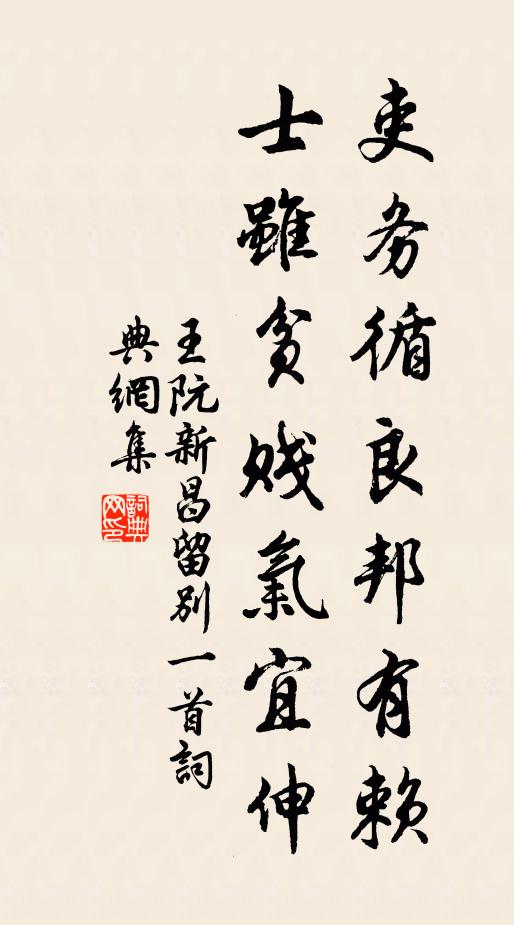 吏务循良邦有赖
士雖貧賤氣宜伸
王阮新昌留别一首詞
典網集
詞典網印